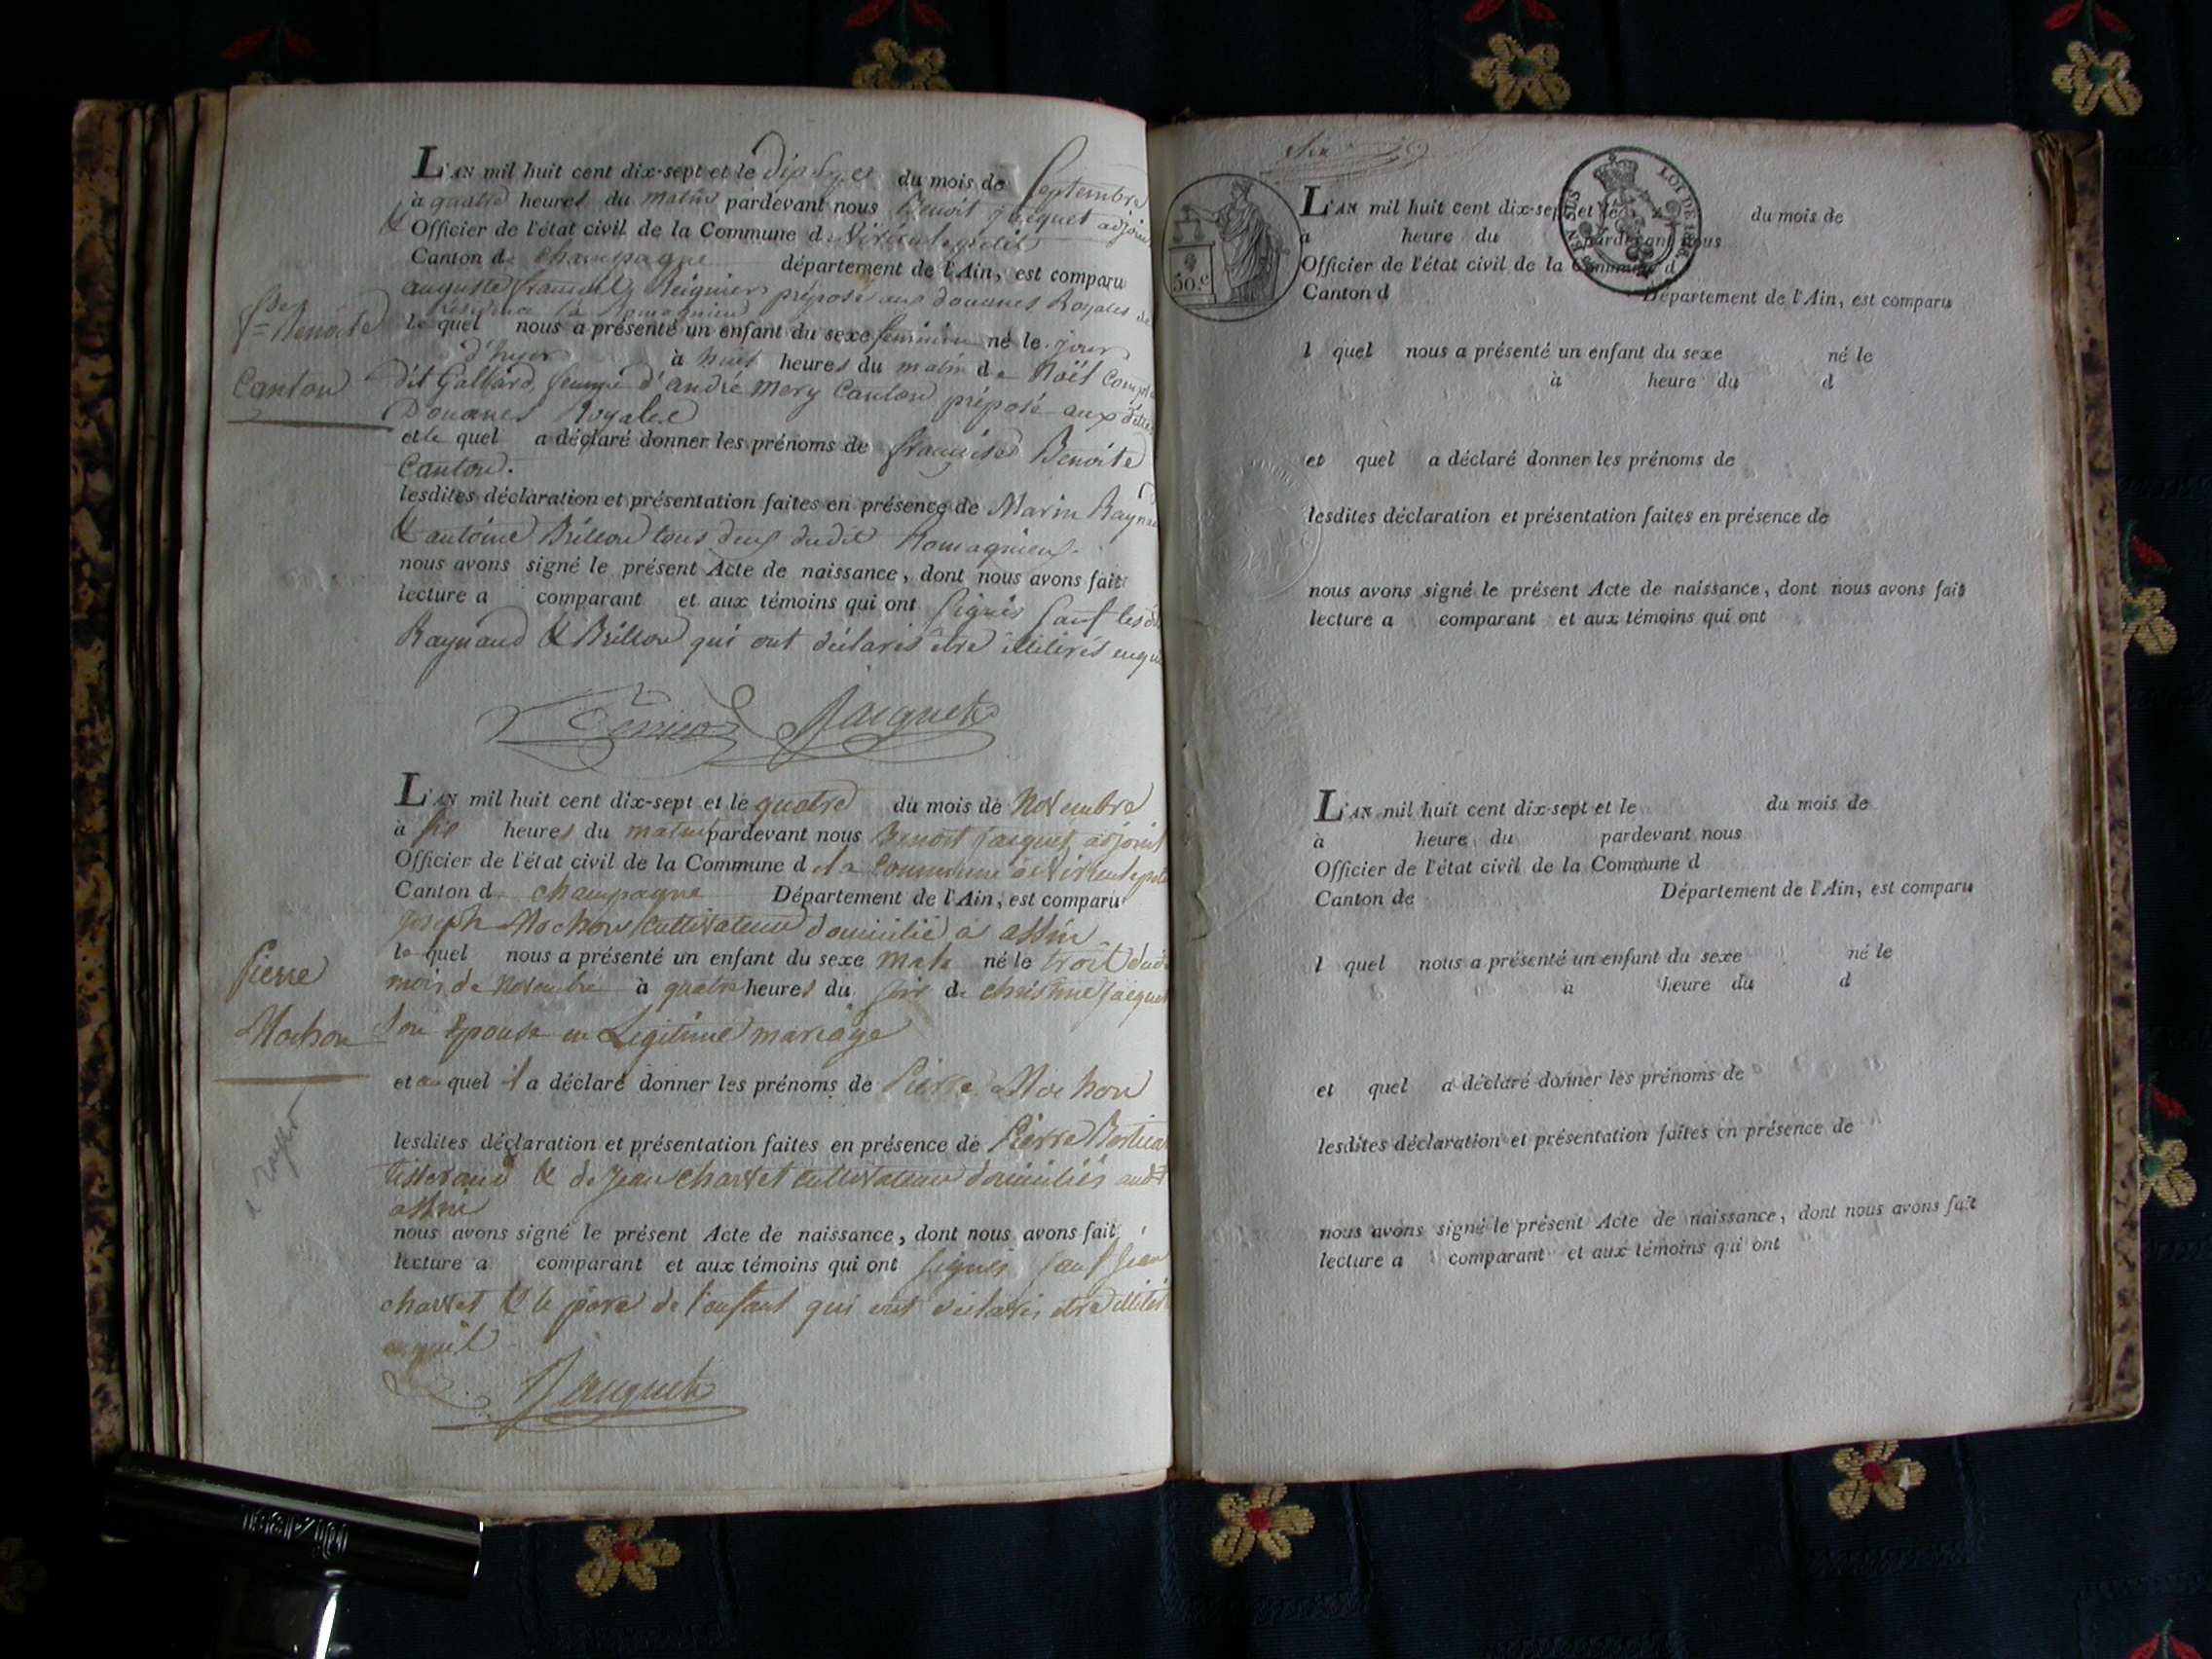 L'AN mil huit cent dix-sept et le du mois de Septembre
à quatre heures du matin pardevant nous Benoit Jacquet adjoint
& Officier de l'état civil de la Commune d.
Canton de Champagne département de l'Ain, est comparu
auguste préposé aux douanes Royales de
Résidence à Romagnieu
le quel nous a présenté un enfant du sexe feminin né le jour
d'hyer à huit heures du matin de
dit Galbard, femme d'andré Mery Canton préposé aux dites
Douanes Royales
et le quel a déclaré donner les prénoms de françoise Benoite
Canton.
lesdites déclaration et présentation faites en présence de Marin
& antoine Brillon tous deux dudit Romagnieu.
nous avons signé le présent Acte de naissance, dont nous avons fait
lecture a comparant et aux témoins qui ont signés sauf les
Raynaud & Brillon qui ont déclarés etre illitérés
Jacquet
fse Benoite
Canton
L'AN mil huit cent dix-sept et le quatre du mois de Novembre
à six heures du matin pardevant nous Benoit Jacquet adjoint
Officier de l'état civil de la Commune d la Commune de
Canton de Champagne Département de l'Ain, est comparu
Joseph Mochon Cultivateur domicilié à assin
le quel nous a présenté un enfant du sexe male né le trois dud.
mois de Novembre à quatre heures du soir de Christine Jacquet
Son Epouse en Legitime mariage
et au quel il a déclaré donner les prénoms de Pierre Mochon
lesdites déclaration et présentation faites en présence de Pierre
tisserand & de Jean Charvet cultivateur domiciliés audt
assin
nous avons signé le présent Acte de naissance, dont nous avons fait
lecture a comparant et aux témoins qui ont signés sauf Jean
Charvet & le père de l'enfant qui ont déclarés etre
enquil
Jacquet
Pierre
Mochon
L'AN mil huit cent dix-sept et le du mois de
à heure du pardevant nous
Officier de l'état civil de la Commune d
Canton d Département de l'Ain, est comparu
l quel nous a présenté un enfant du sexe né le
à heure du d
et quel a déclaré donner les prénoms de
lesdites déclaration et présentation faites en présence de
nous avons signé le présent Acte de naissance, dont nous avons fait
lecture a comparant et aux témoins qui ont
50.c
LOI DE 1816.
EN SUS
L'AN mil huit cent dix-sept et le du mois de
à heure du pardevant nous
Officier de l'état civil de la Commune d
Canton de Département de l'Ain, est comparu
l quel nous a présenté un enfant du sexe né le
à heure du d
et quel a déclaré donner les prénoms de
lesdites déclaration et présentation faites en présence de
nous avons signé le présent Acte de naissance, dont nous avons fait
lecture a comparant et aux témoins qui ont